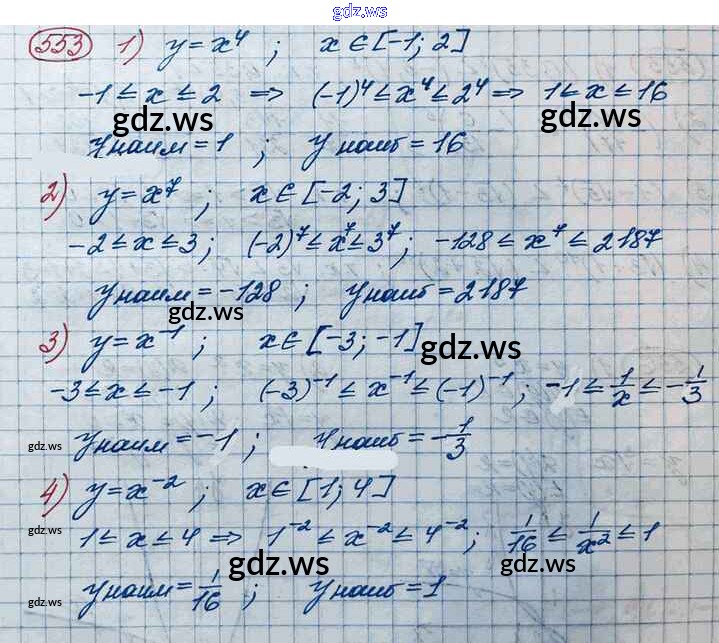 gdz.ws
553 1) y = x⁴ ; x ∈ [-1; 2]
-1 ≤ x ≤ 2 ⇒ (-1)⁴ ≤ x⁴ ≤ 2⁴ ⇒ 1 ≤ x ≤ 16
gdz.ws gdz.ws
y наим = 1 ; y наиб = 16
2) y = x⁷ ; x ∈ [-2; 3]
-2 ≤ x ≤ 3 ; (-2)⁷ ≤ x⁷ ≤ 3⁷ ; -128 ≤ x⁷ ≤ 2187
y наим = -128 ; y наиб = 2187
gdz.ws
3) y = x⁻¹ ; x ∈ [-3; -1]
gdz.ws
-3 ≤ x ≤ -1 ; (-3)⁻¹ ≤ x⁻¹ ≤ (-1)⁻¹ ; -1 ≤ 1/x ≤ -1/3
gdz.ws y наим = -1 ; y наиб = -1/3
4) y = x⁻² ; x ∈ [1; 4]
gdz.ws 1 ≤ x ≤ 4 ⇒ 1⁻² ≤ x⁻² ≤ 4⁻² ; 1/16 ≤ 1/x² ≤ 1
gdz.ws gdz.ws
gdz.ws y наим = 1/16 ; y наиб = 1